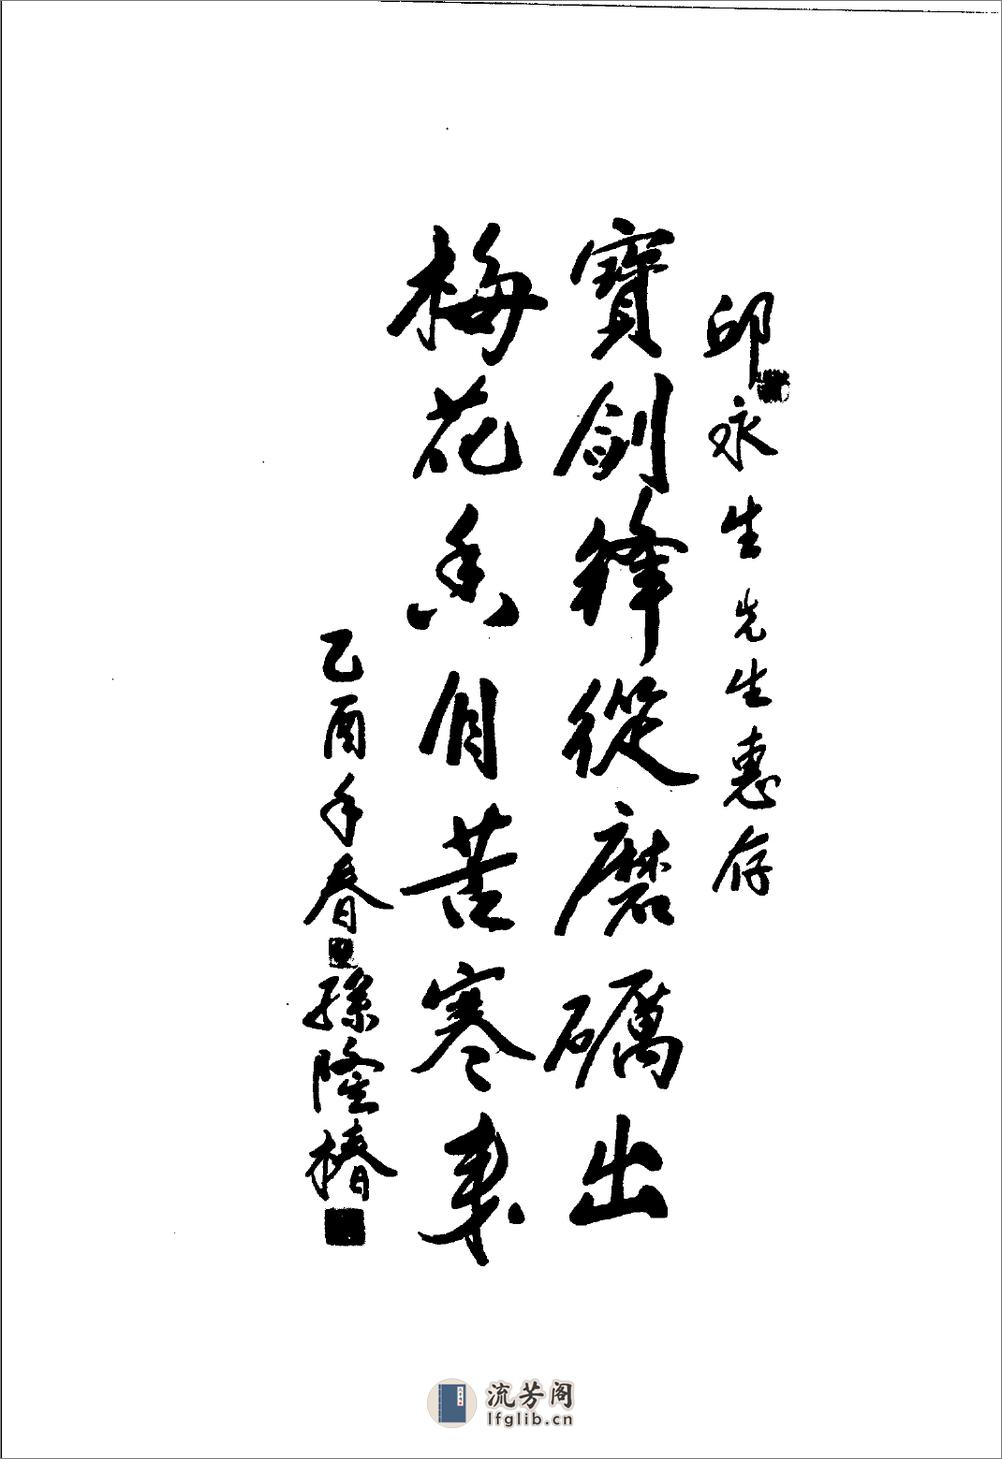 邱永生先生惠存
寶劍鋒從磨礪出
梅花香自苦寒來
乙酉年春 孫隆椿
流芳阁
lfglib.cn